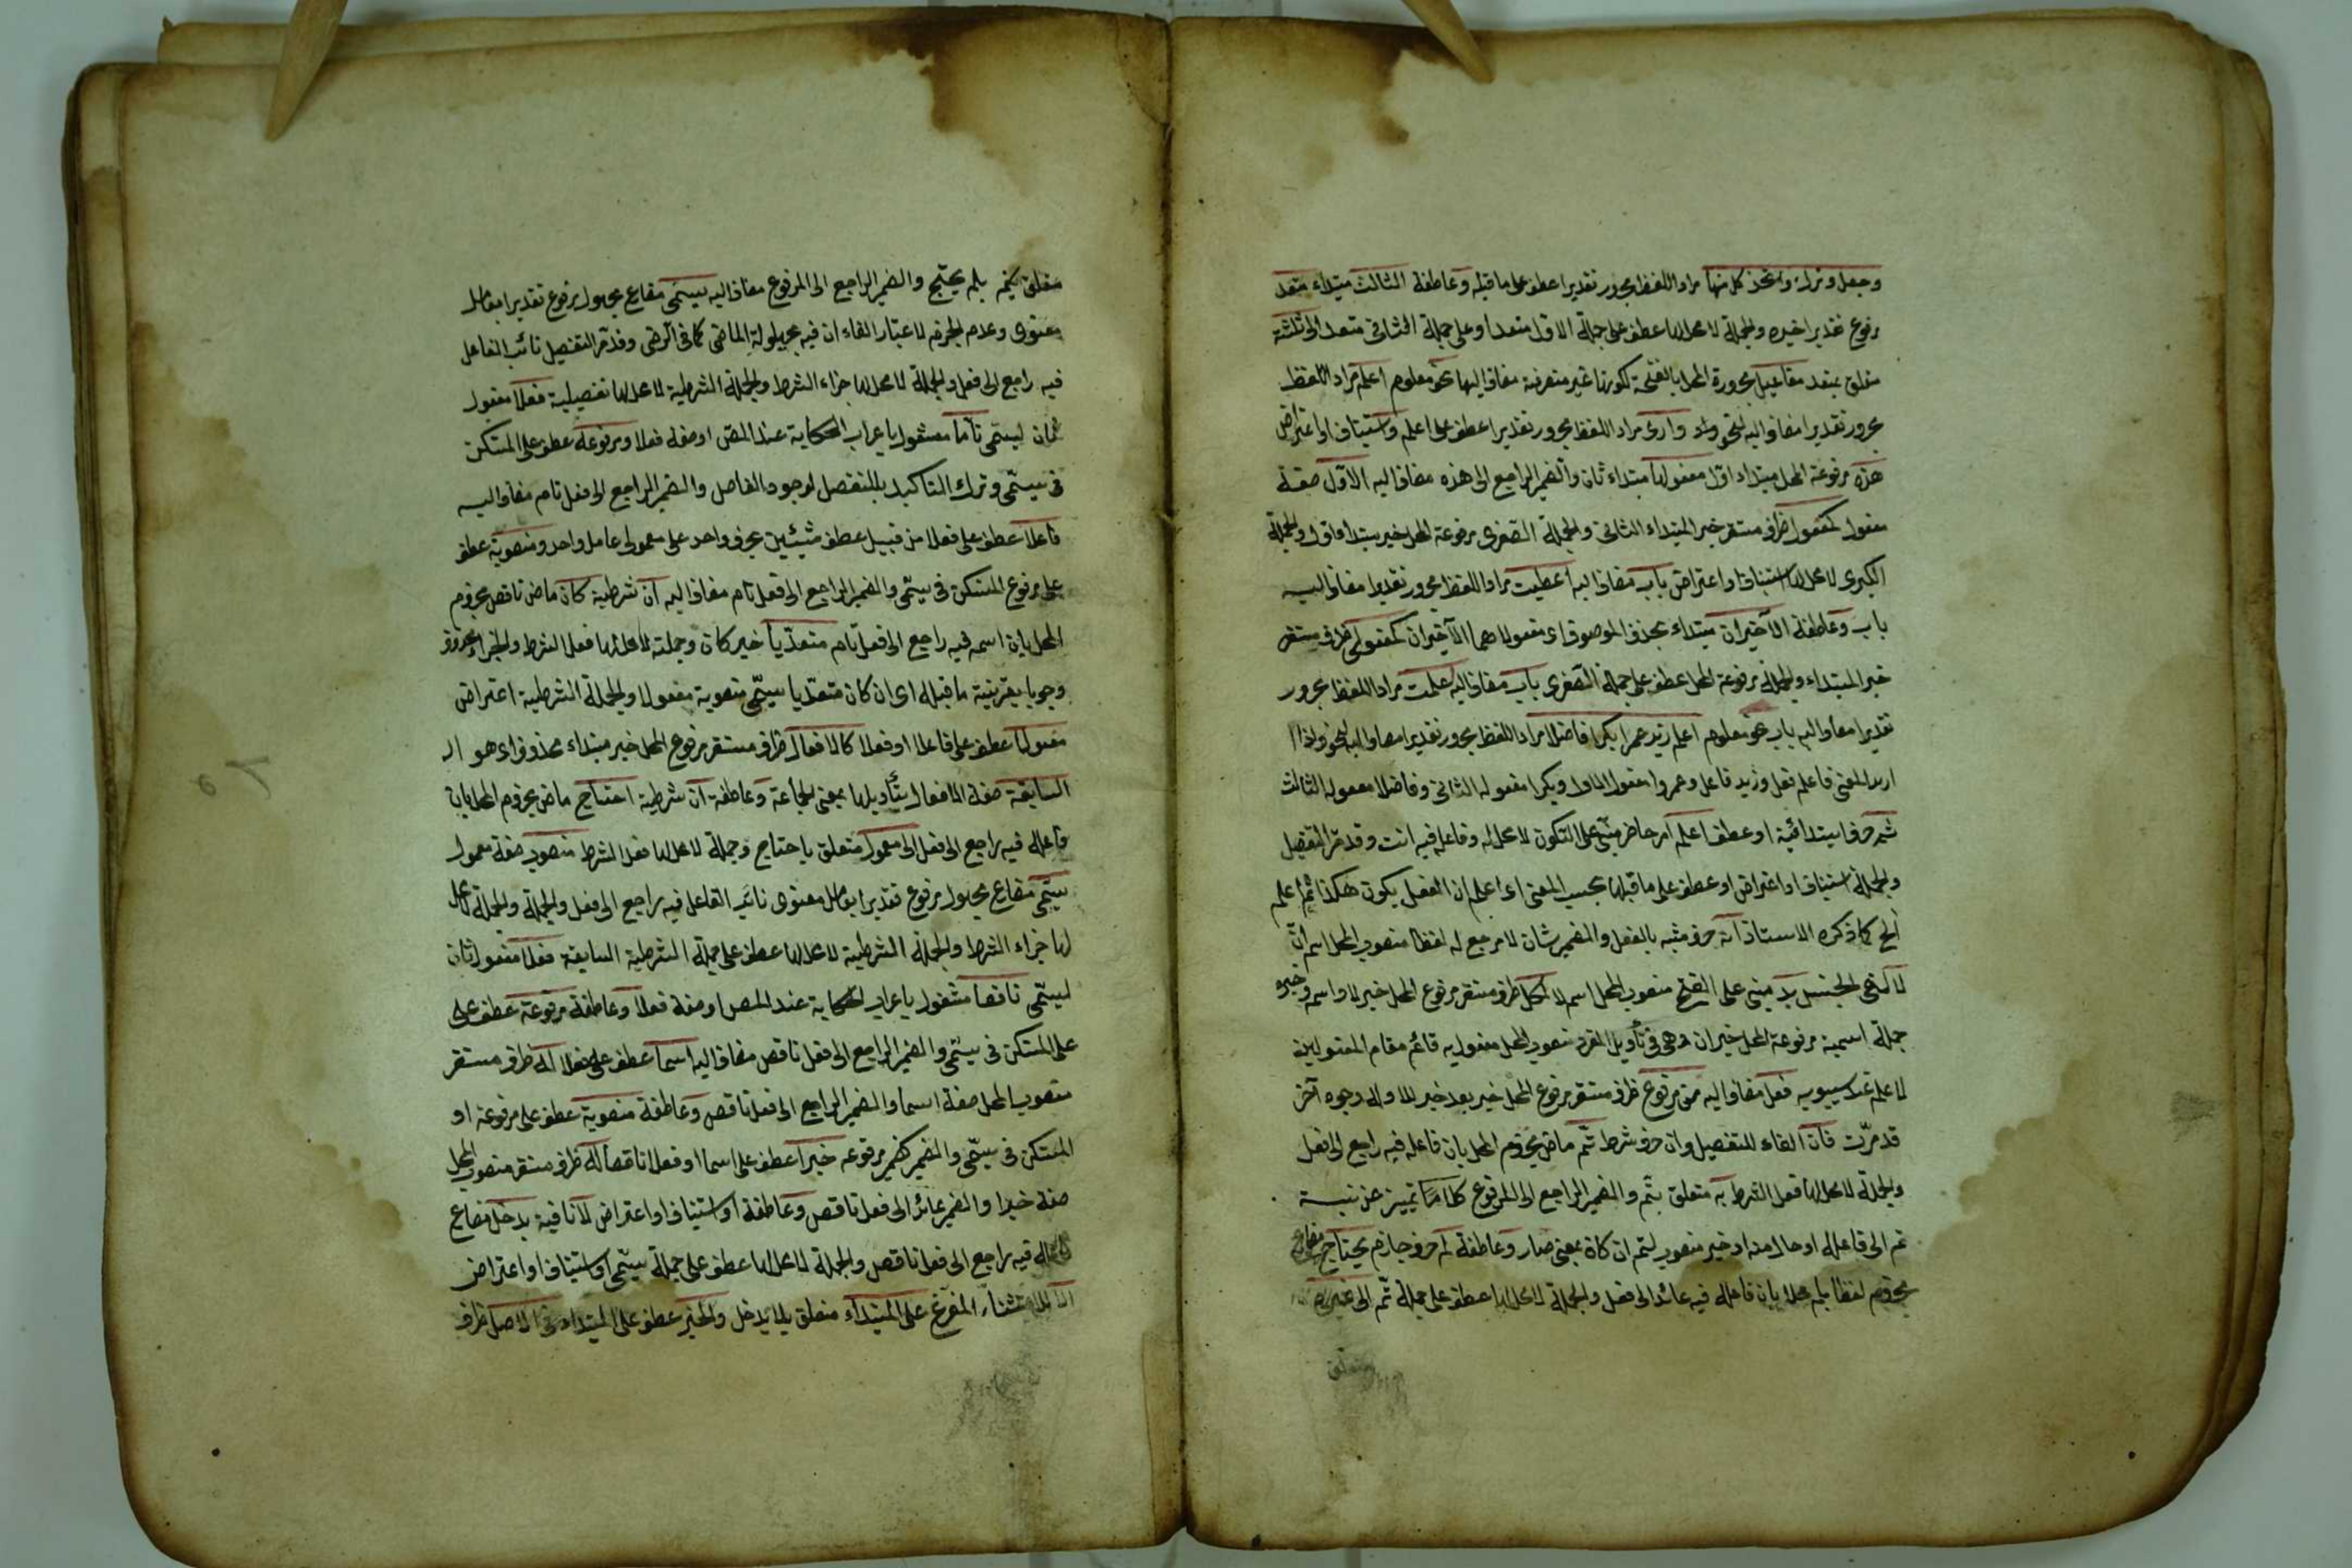 وجعل وترك واتخذ كل منها مراد اللفظ مجرور تقديرا عطف على ما قبله وعاطفة الثالث مبتداء متعد
مرفوع تقديرا خبره والجملة لا محل لها عطف على جملة الاول متعد او على جملة الثاني متعد الى ثلثة
متعلق بمتعد مفاعيل مجرورة المحل بالفتحة لكونها غير منصرفة مضاف اليها نحو معلوم اعلم مراد اللفظ
مجرور تقديرا مضاف اليه لنحو واو وارى مراد اللفظ مجرور تقديرا عطف على اعلم واستيناف او اعتراض
هذه مرفوعة المحل مبتداء اول مفعولها مبتداء ثان والضمير الراجع الى هذه مضاف اليه الاول صفة
مفعول كمفعول ظرف مستقر خبر المبتداء الثاني والجملة الصغرى مرفوعة المحل خبر مبتداء اول والجملة
الكبرى لا محل لها استيناف او اعتراض باب مضاف اليه اعطيت مراد اللفظ مجرور تقديرا مضاف اليه
باب وعاطفة الاخيران مبتداء بحذف الموصوف اى مفعولاهما الاخيران كمفعولى ظرف مستقر
خبر المبتداء والجملة مرفوعة المحل عطف على جملة الصغرى باب مضاف اليه علمت مراد اللفظ مجرور
تقديرا مضاف اليه باب نحو معلوم اعلم زيد عمرا بكرا فاضلا مراد اللفظ مجرور تقديرا مضاف اليه لنحو واذا
اريد المعنى فاعلم فعل وزيد فاعل وعمروا مفعوله الاول وبكرا مفعوله الثاني وفاضلا مفعوله الثالث
ثم حرف ابتدائية او عطف اعلم امر حاضر مبنى على السكون لا محل له وفاعله فيه انت وقد مر التفصيل
والجملة استيناف او اعتراض او عطف على ما قبلها بحسب المعنى اى اعلم ان الفعل يكون هكذا ثم اعلم
الخ كما ذكره الاستاذ انه حرف مشبه بالفعل والضمير شان لا مرجع له لفظا منصوب المحل اسم ان
لا لنفى الجنس بد مبنى على الفتح منصوب المحل اسم لا لكل ظرف مستقر مرفوع المحل خبر لا واسمه وخبره
جملة اسمية مرفوعة المحل خبر ان وهى فى تأويل المفرد منصوب المحل مفعول به قائم مقام المفعولين
لاعلم عند سيبويه فعل مضاف اليه من مرفوع ظرف مستقر مرفوع المحل خبر بعد خبر للا وله وجوه آخر
قد مرت فان الفاء للتفصيل وان حرف شرط تم ماض مجزوم المحل بان فاعله فيه راجع الى فعل
والجملة لا محل لها فعل الشرط به متعلق بتم والضمير الراجع الى المرفوع كلاما تمييز عن نسبة
تم الى فاعله او حال منه او خبر منصوب لتم ان كان بمعنى صار وعاطفة لم حرف جازم يحتاج مضارع
مجزوم لفظا بلم محلا بان فاعله فيه عائد الى فعل والجملة لا محل لها عطف على جملة تم الى غيره
متعلق
متعلق بلم يحتج والضمير الراجع الى المرفوع مضاف اليه يسمى مضارع مجهول مرفوع تقديرا بعامل
معنوى وعدم الجزم لاعتبار الفاء ان فيه بحيلولة الماضى كما فى الرضى وقد مر التفصيل نائب الفاعل
فيه راجع الى فعل والجملة لا محل لها جزاء الشرط والجملة الشرطية لا محل لها تفصيلية فعلا مفعول
ثان ليسمى تاما مشغول باعراب الحكاية عند المص او صفة فعلا ومرفوعه عطف على المستكن
فى يسمى وترك التاكيد بالمنفصل لوجود الفاصل والضمير الراجع الى فعل تام مضاف اليه
فاعلا عطف على فعلا من قبيل عطف شيئين بحرف واحد على معمولى عامل واحد ومنصوبه عطف
على مرفوع المستكن فى يسمى والضمير الراجع الى فعل تام مضاف اليه ان شرطية كان ماض ناقص مجزوم
المحل بان اسمه فيه راجع الى فعل تام متعديا خبر كان وجملته لا محل لها فعل الشرط والجزاء محذوف
وجوبا بقرينة ما قبله اى ان كان متعديا يسمى منصوبه مفعولا والجملة الشرطية اعتراض
مفعولا عطف على فاعلا او فعلا كالافعال ظرف مستقر مرفوع المحل خبر مبتداء محذوف اى هو الـ
السابقة صفة الافعال بتأويلها بمعنى الجماعة وعاطفة ان شرطية احتاج ماض مجزوم المحل بان
فاعله فيه راجع الى فعل الى معمول متعلق باحتاج وجملة لا محل لها فعل الشرط منصوب صفة معمول
يسمى مضارع مجهول مرفوع تقديرا بعامل معنوى نائب الفاعل فيه راجع الى فعل والجملة والجملة لا محل
لها جزاء الشرط والجملة الشرطية لا محل لها عطف على جملة الشرطية السابقة فعلا مفعول ثان
ليسمى ناقصا مشغول باعراب الحكاية عند المص او صفة فعلا وعاطفة مرفوعه عطف على
على المستكن فى يسمى والضمير الراجع الى فعل ناقص مضاف اليه اسما عطف على فعلا له ظرف مستقر
منصوب المحل صفة اسما والضمير الراجع الى فعل ناقص وعاطفة منصوبه عطف على مرفوعه او
المستكن فى يسمى والضمير كضمير مرفوعه خبرا عطف على اسما او فعلا ناقصا له ظرف مستقر منصوب المحل
صفة خبرا والضمير عائد الى فعل ناقص وعاطفة او استيناف او اعتراض لا نافية يدخل مضارع
فاعله فيه راجع الى فعل ناقص والجملة لا محل لها عطف على جملة يسمى او استيناف او اعتراض
الا للاستثناء المفرغ على المبتداء متعلق بلا يدخل والخبر عطف على المبتداء فى الاصل ظرف